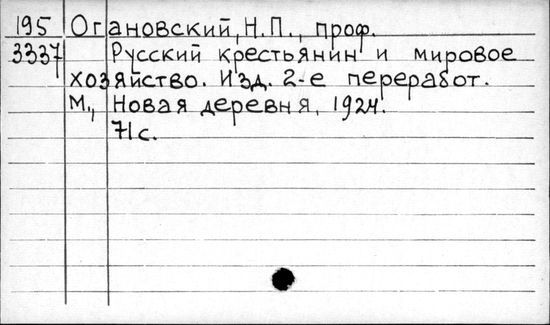 195 Огановский, Н.П., проф.
3337 Русский крестьянин и мировое
хозяйство. Изд. 2-е переработ.
М., Новая деревня, 1924.
71с.